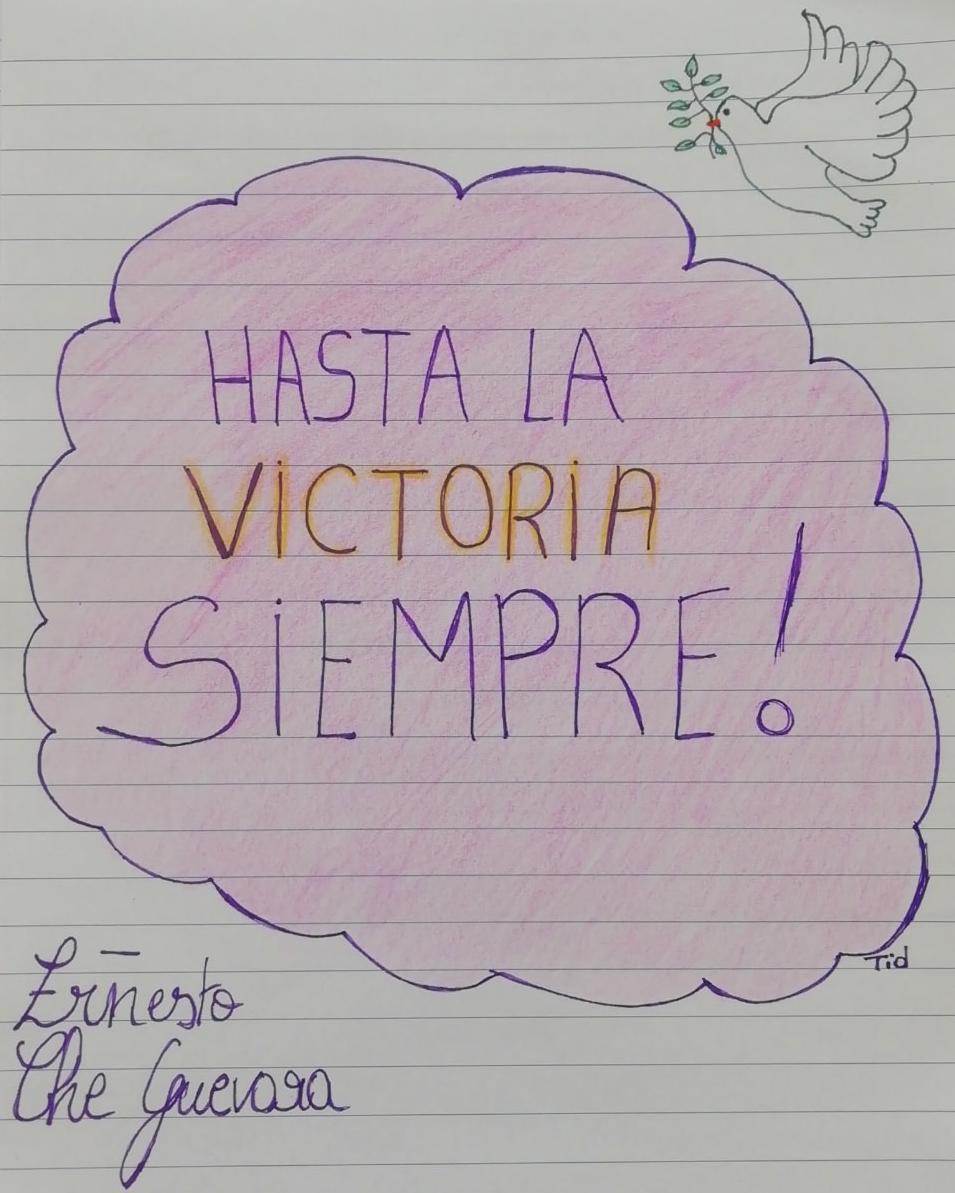 HASTA LA
VICTORIA
SIEMPRE!
Tid
Ernesto
Che Guevara